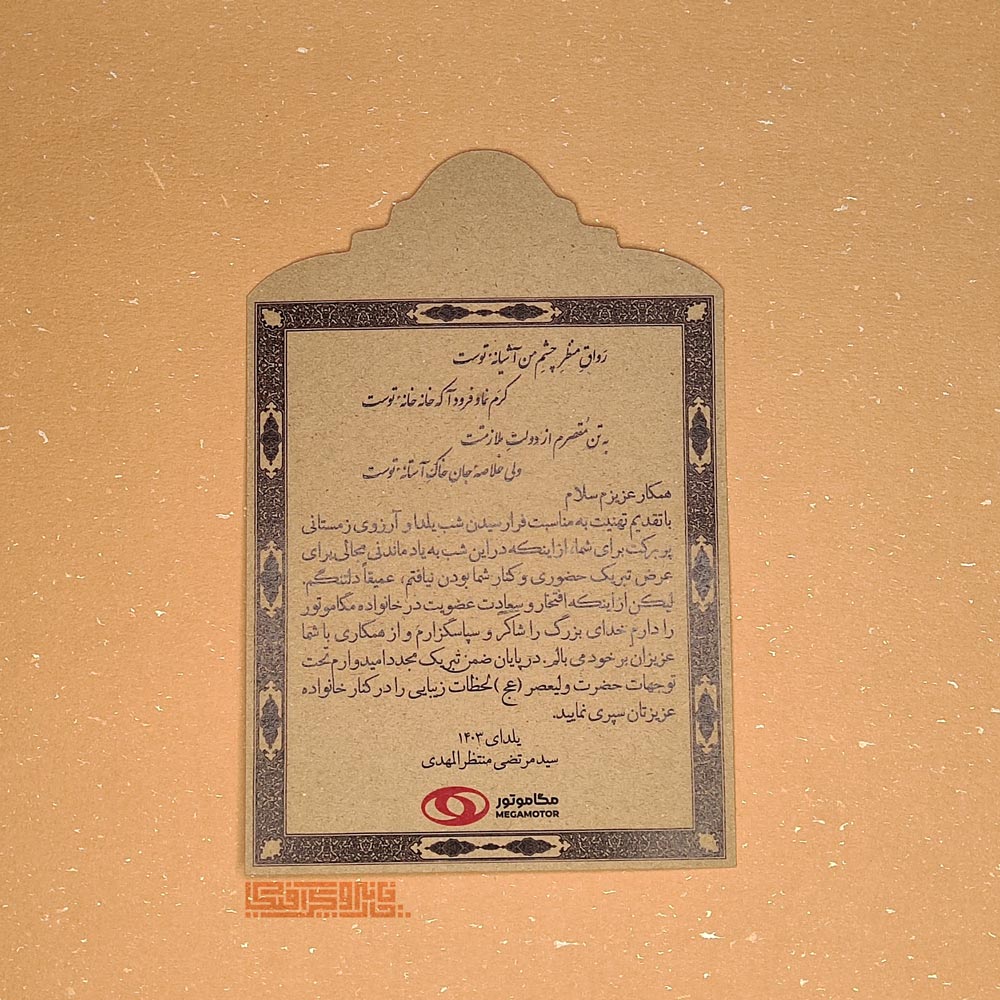 رَواقِ منظرِ چشمِ من آشیانهٔ توست
کرم نما و فرود آ که خانه خانهٔ توست
به تن مُقصرم از دولتِ ملازمتت
ولی خلاصهٔ جان خاکِ آستانهٔ توست
همکار عزیزم سلام
با تقدیم تهنیت به مناسبت فرارسیدن شب یلدا و آرزوی زمستانی
پر برکت برای شما، از اینکه در این شب به یاد ماندنی مجالی برای
عرض تبریک حضوری و کنار شما بودن نیافتم، عمیقاً دلتنگم.
لیکن از اینکه افتخار و سعادت عضویت در خانواده مگاموتور
را دارم خدای بزرگ را شاکر و سپاسگزارم و از همکاری با شما
عزیزان بر خود می بالم. در پایان ضمن تبریک مجدد امیدوارم تحت
توجهات حضرت ولیعصر (عج) لحظات زیبایی را در کنار خانواده
عزیزتان سپری نمایید.
یلدای ۱۴۰۳
سید مرتضی منتظرالمهدی
مگاموتور
MEGAMOTOR